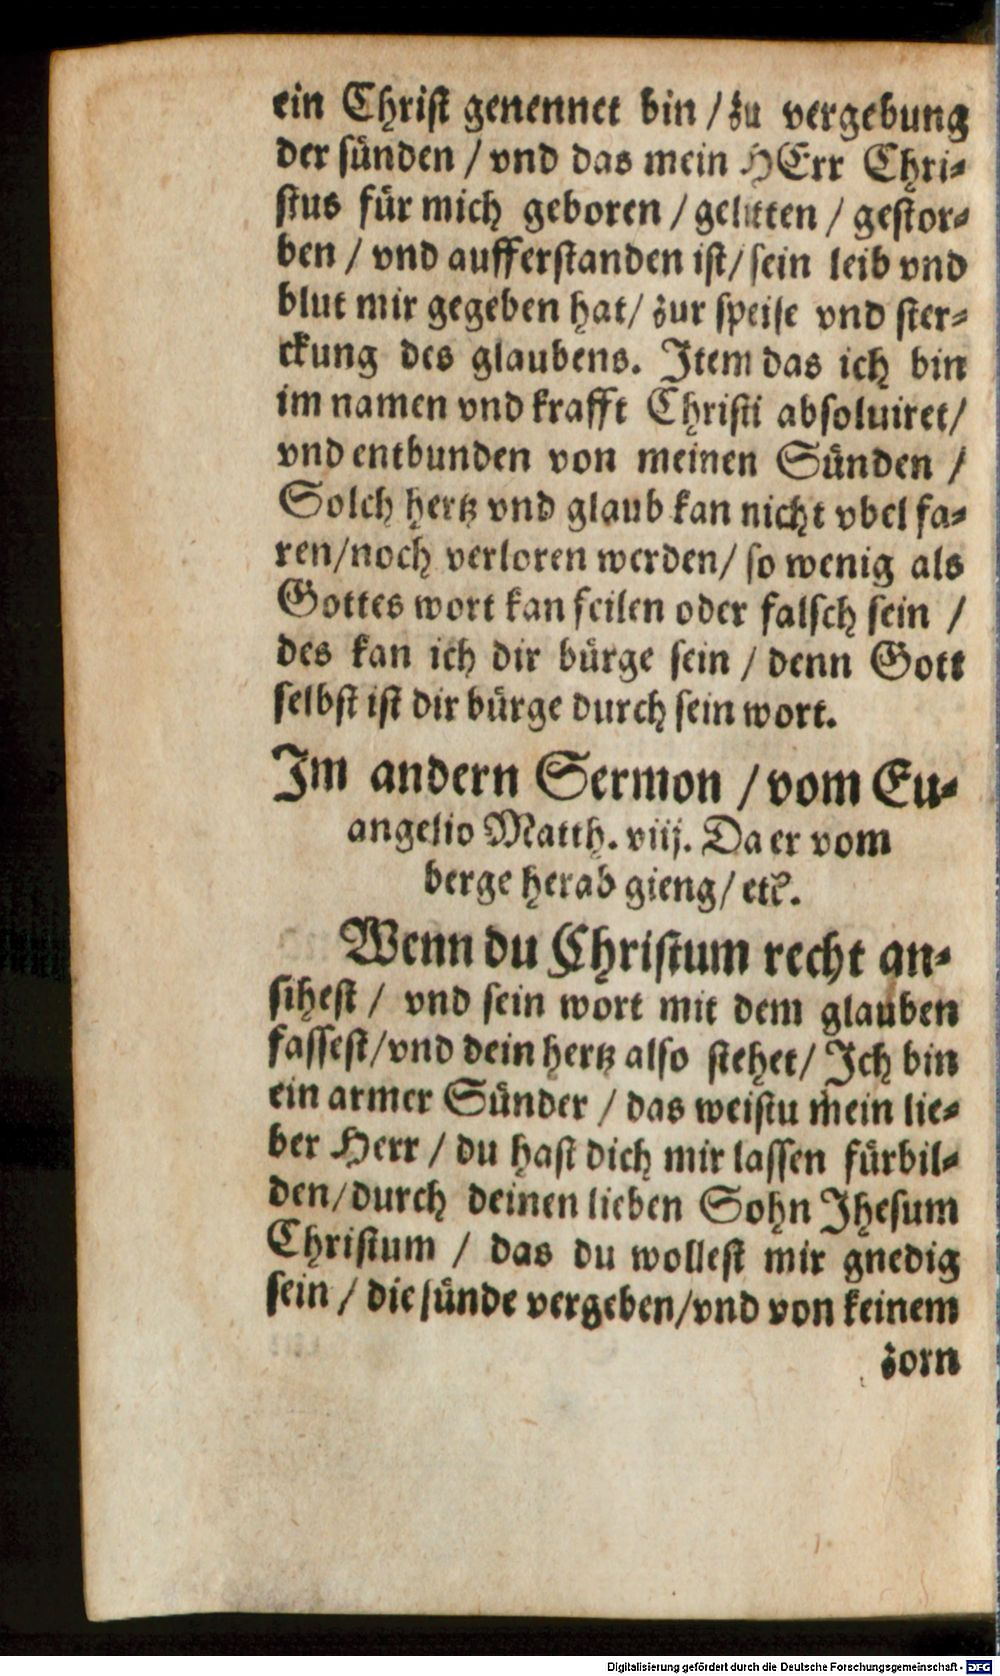 ein Christ genennet bin / zu vergebung
der sünden / vnd das mein HErr Chri-
stus für mich geboren / gelitten / gestor-
ben / vnd aufferstanden ist / sein leib vnd
blut mir gegeben hat / zur speise vnd ster-
ckung des glaubens. Item das ich bin
im namen vnd krafft Christi absoluiret /
vnd entbunden von meinen Sünden /
Solch hertz vnd glaub kan nicht vbel fa-
ren / noch verloren werden / so wenig als
Gottes wort kan feilen oder falsch sein /
des kan ich dir bürge sein / denn Gott
selbst ist dir bürge durch sein wort.
Im andern Sermon / vom Eu-
angelio Matth. viij. Da er vom
berge herab gieng / etc.
Wenn du Christum recht an-
sihest / vnd sein wort mit dem glauben
fassest / vnd dein hertz also stehet / Ich bin
ein armer Sünder / das weistu mein lie-
ber Herr / du hast dich mir lassen fürbil-
den / durch deinen lieben Sohn Jhesum
Christum / das du wollest mir gnedig
sein / die sünde vergeben / vnd von keinem
zorn
Digitalisierung gefördert durch die Deutsche Forschungsgemeinschaft - DFG